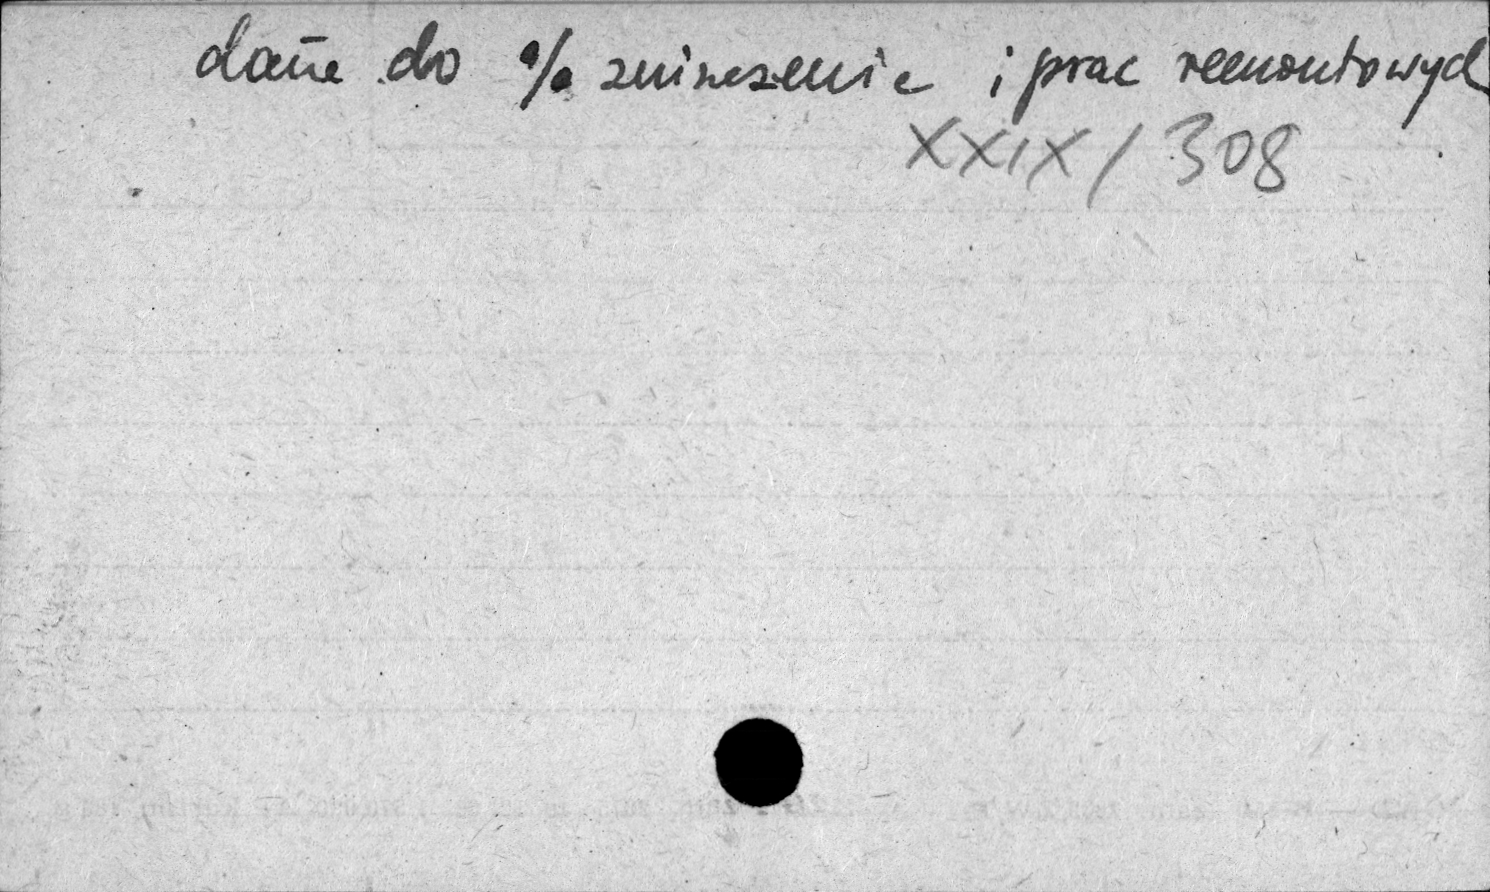 dane do % zniszczenie i prac remontowych
XXIX / 308